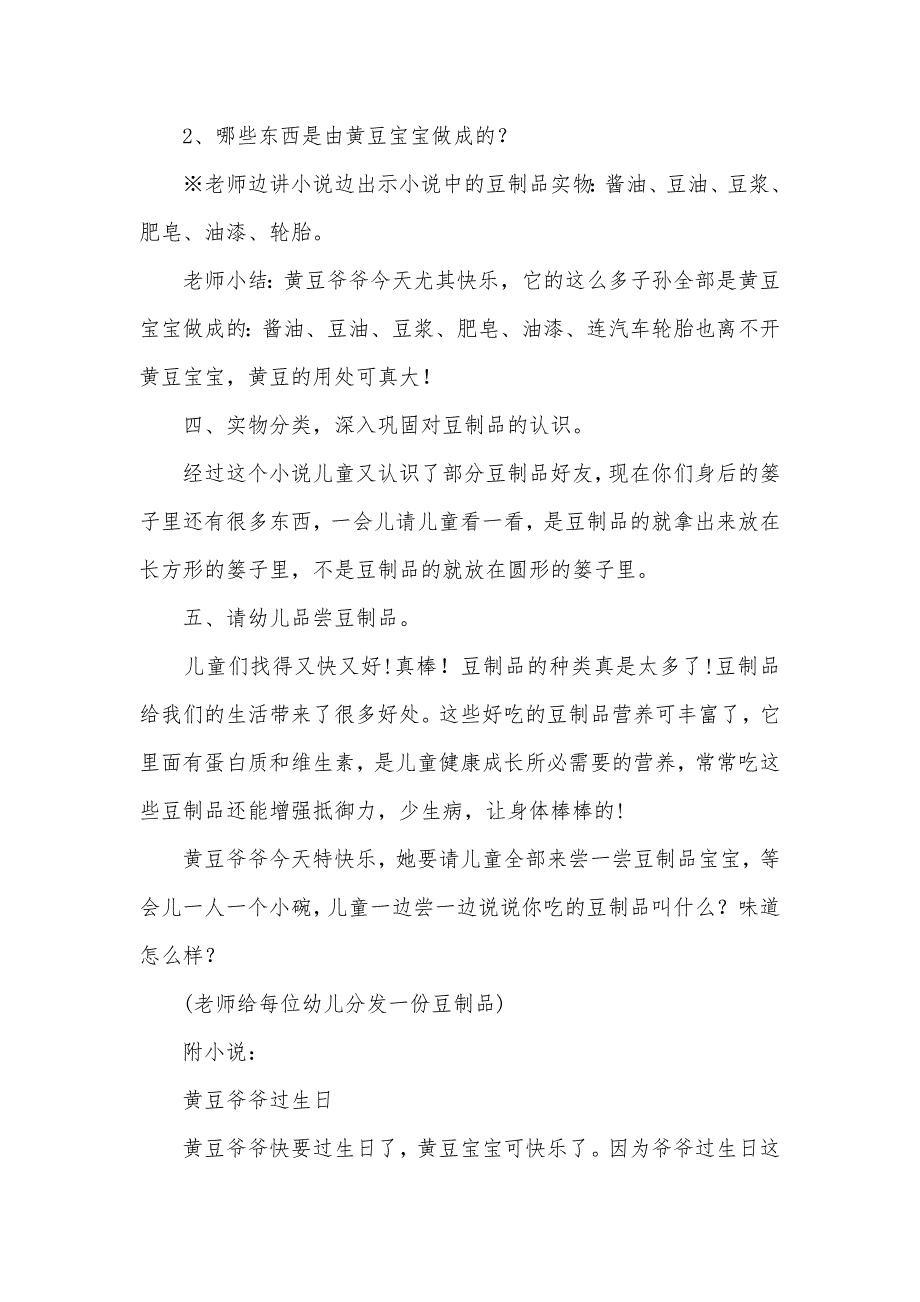 2、哪些东西是由黄豆宝宝做成的？
※老师边讲小说边出示小说中的豆制品实物：酱油、豆油、豆浆、
肥皂、油漆、轮胎。
老师小结：黄豆爷爷今天尤其快乐，它的这么多子孙全部是黄豆
宝宝做成的：酱油、豆油、豆浆、肥皂、油漆、连汽车轮胎也离不开
黄豆宝宝，黄豆的用处可真大！
四、实物分类，深入巩固对豆制品的认识。
经过这个小说儿童又认识了部分豆制品好友，现在你们身后的篓
子里还有很多东西，一会儿请儿童看一看，是豆制品的就拿出来放在
长方形的篓子里，不是豆制品的就放在圆形的篓子里。
五、请幼儿品尝豆制品。
儿童们找得又快又好!真棒！豆制品的种类真是太多了!豆制品
给我们的生活带来了很多好处。这些好吃的豆制品营养可丰富了，它
里面有蛋白质和维生素，是儿童健康成长所必需要的营养，常常吃这
些豆制品还能增强抵御力，少生病，让身体棒棒的!
黄豆爷爷今天特快乐，她要请儿童全部来尝一尝豆制品宝宝，等
会儿一人一个小碗，儿童一边尝一边说说你吃的豆制品叫什么？味道
怎么样？
(老师给每位幼儿分发一份豆制品)
附小说：
黄豆爷爷过生日
黄豆爷爷快要过生日了，黄豆宝宝可快乐了。因为爷爷过生日这